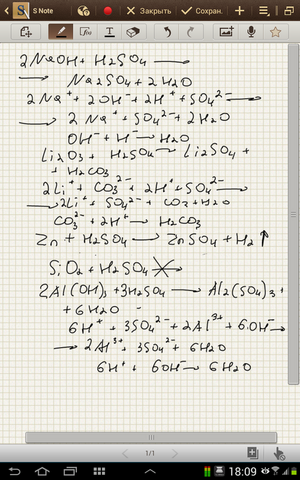 S Note
Закрыть
Сохран.
2NaOH + H2SO4 →
→ Na2SO4 + 2H2O
2Na⁺ + 2OH⁻ + 2H⁺ + SO4²⁻ →
→ 2Na⁺ + SO4²⁻ + 2H2O
OH⁻ + H⁻ → H2O
Li2O3 + H2SO4 → Li2SO4 +
+ H2CO3
2Li⁺ + CO3²⁻ + 2H⁺ + SO4²⁻ →
→ 2Li⁺ + SO4²⁻ + CO2 + H2O
CO3²⁻ + 2H⁺ → H2CO3
Zn + H2SO4 → ZnSO4 + H2↑
SiO2 + H2SO4 ✕→
2Al(OH)3 + 3H2SO4 → Al2(SO4)3 +
+ 6H2O
6H⁺ + 3SO4²⁻ + 2Al³⁺ + 6OH⁻ →
→ 2Al³⁺ + 3SO4²⁻ + 6H2O
6H⁺ + 6OH⁻ → 6H2O
1/1
18:09